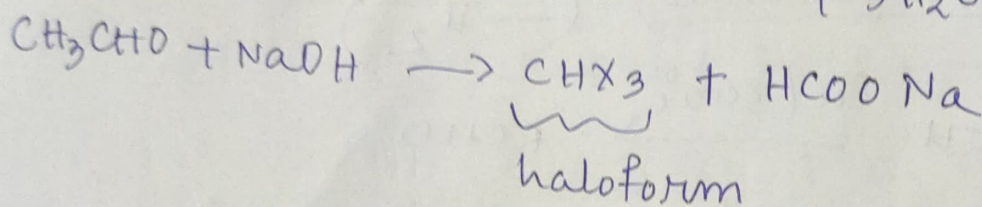 CH3CHO + NaOH → CHX3 + HCOONa
haloform